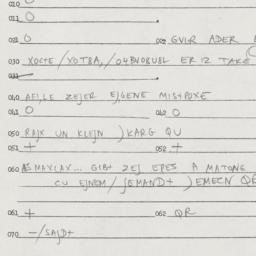 010 O
011 O
021 O 022 GVIR ADER
030 XOCTE/XOTBA,/ ER IZ TAKE
033
040 AFILE ZEJER EJGENE MISHPOXE
041 O 042 O
050 RAJX UN KLEJN ) KARG QU
051 + 052 +
060 GIB+ ZEJ EPES A MATONE
CU EJNEM/JEMAND+ ) EMECN QR
061 + 062 QR
070 —/SAJD+